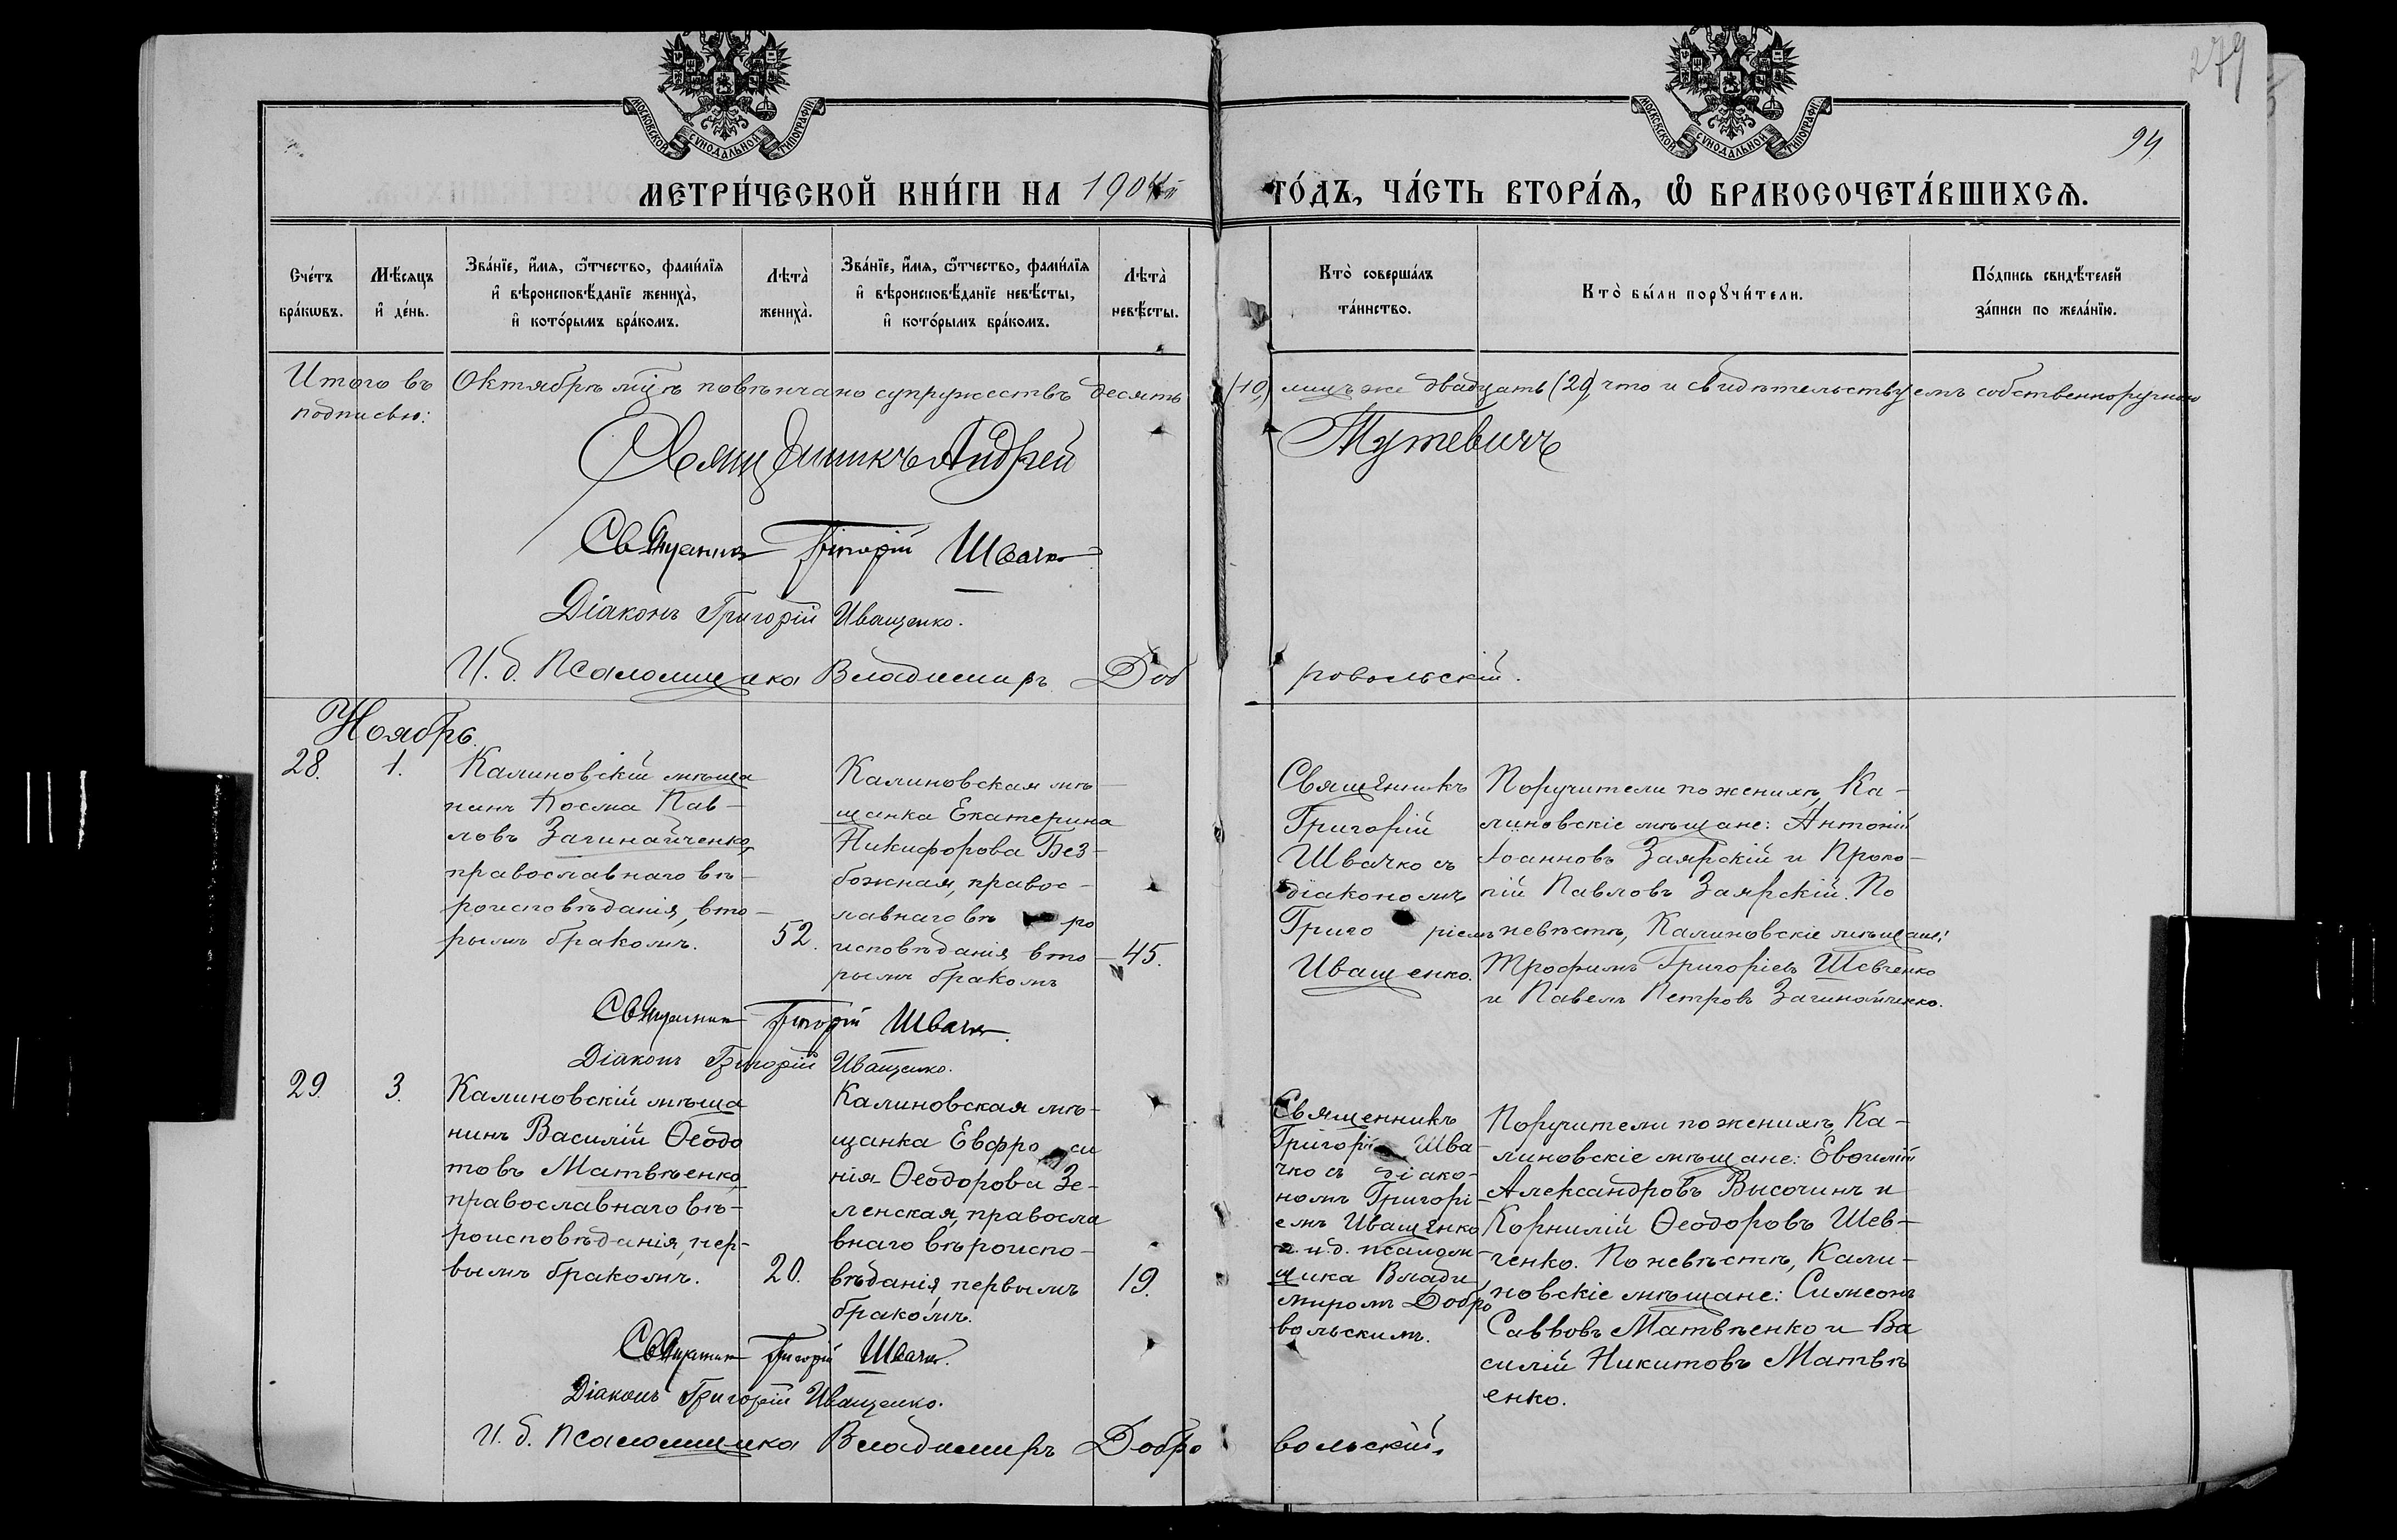 279
94.
МОСКОВСКОЙ СУНОДАЛЬНОЙ ТИПОГРАФІИ
МОСКОВСКОЙ СУНОДАЛЬНОЙ ТИПОГРАФІИ
МЕТРИ́ЧЕСКОЙ КНИ́ГИ НА 1904й ГО́ДЪ, ЧА́СТЬ ВТОРА́Ѧ, Ѽ БРАКОСОЧЕТА́ВШИХСѦ.
Счéтъ
брáкѡвъ.
Мѣ́сяцъ
и҆ дéнь.
Звáнїе, и҆́мѧ, ѻ҆́тчество, фами́лїѧ
и҆ вѣроисповѣ́данїе женихà,
и҆ кото́рымъ брáкомъ.
Лѣтà
женихà.
Звáнїе, и҆́мѧ, ѻ҆́тчество, фами́лїѧ
и҆ вѣроисповѣ́данїе невѣ́сты,
и҆ кото́рымъ брáкомъ.
Лѣтà
невѣ́сты.
Ктò совершáлъ
тáинство.
Ктò бы́ли порꙋчи́тели.
По́дпись свидѣ́телей
зáписи по желáнїю.
Итого въ Октябрѣ мцѣ повѣнчано супружествъ десять (10) лицъ же двадцать (20), что и свидѣтельствуемъ собственноручною
подписью:
Священникъ Андрей Тутевичъ
Священник Григорій Швачко
Діаконъ Григорій Иващенко.
И. д. Псаломщика Владимиръ Добровольскій.
Ноябрь.
28.
1.
Калиновскій мѣща
нинъ Косма Пав-
ловъ Загинайченко,
православнаго вѣ-
роисповѣданія, вто-
рымъ бракомъ.
52.
Калиновская мѣ-
щанка Екатерина
Никифорова Без-
божная, правос-
лавнаго вѣро
исповѣданія вто-
рымъ бракомъ
45.
Священникъ
Григорій
Швачко съ
діакономъ
Григоріемъ
Иващенко.
Поручители по женихѣ, Ка-
линовскіе мѣщане: Антоній
Іоанновъ Заярскій и Проко-
пій Павловъ Заярскій. По
невѣстѣ, Калиновскіе мѣщане:
Трофимъ Григоріевъ Шевченко
и Павелъ Петровъ Загинайченко.
Священник Григорій Швачко.
Діаконъ Григорій Иващенко.
29.
3.
Калиновскій мѣща
нинъ Василій Ѳеодо
товъ Матвѣенко,
православнаго вѣ-
роисповѣданія, пер-
вымъ бракомъ.
20.
Калиновская мѣ-
щанка Евфроси
нія Ѳеодорова Зе-
ленская, правосла
внаго вѣроиспо-
вѣданія, первымъ
бракомъ.
19.
Священникъ
Григорій Шва
чко съ діако-
номъ Григорі-
емъ Иващенко
и и.д. псалом-
щика Влади
миромъ Добро
вольскимъ.
Поручители по женихѣ, Ка-
линовскіе мѣщане: Евѳимій
Александровъ Височинъ и
Корнилій Ѳеодоровъ Шев-
ченко. По невѣстѣ, Кали-
новскіе мѣщане: Симеонъ
Саввовъ Матвѣенко и Ва
силій Никитовъ Матвѣ
енко.
Священник Григорій Швачко.
Діаконъ Григорій Иващенко.
И. д. Псаломщика Владимиръ Добровольскій.